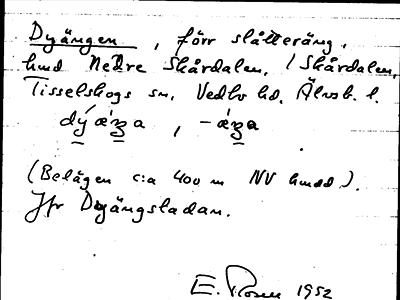 Dyängen, förr slåtteräng,
hmd Nedre Skårdalen, / Skårdalen,
Tisselskogs sn, Vedbo hd, Älvsb. l.
dý ǽʒa, -ǽʒa
(Belägen c:a 400 m NV hmdd).
Jfr Dyängsladan.
E. Rosen 1952